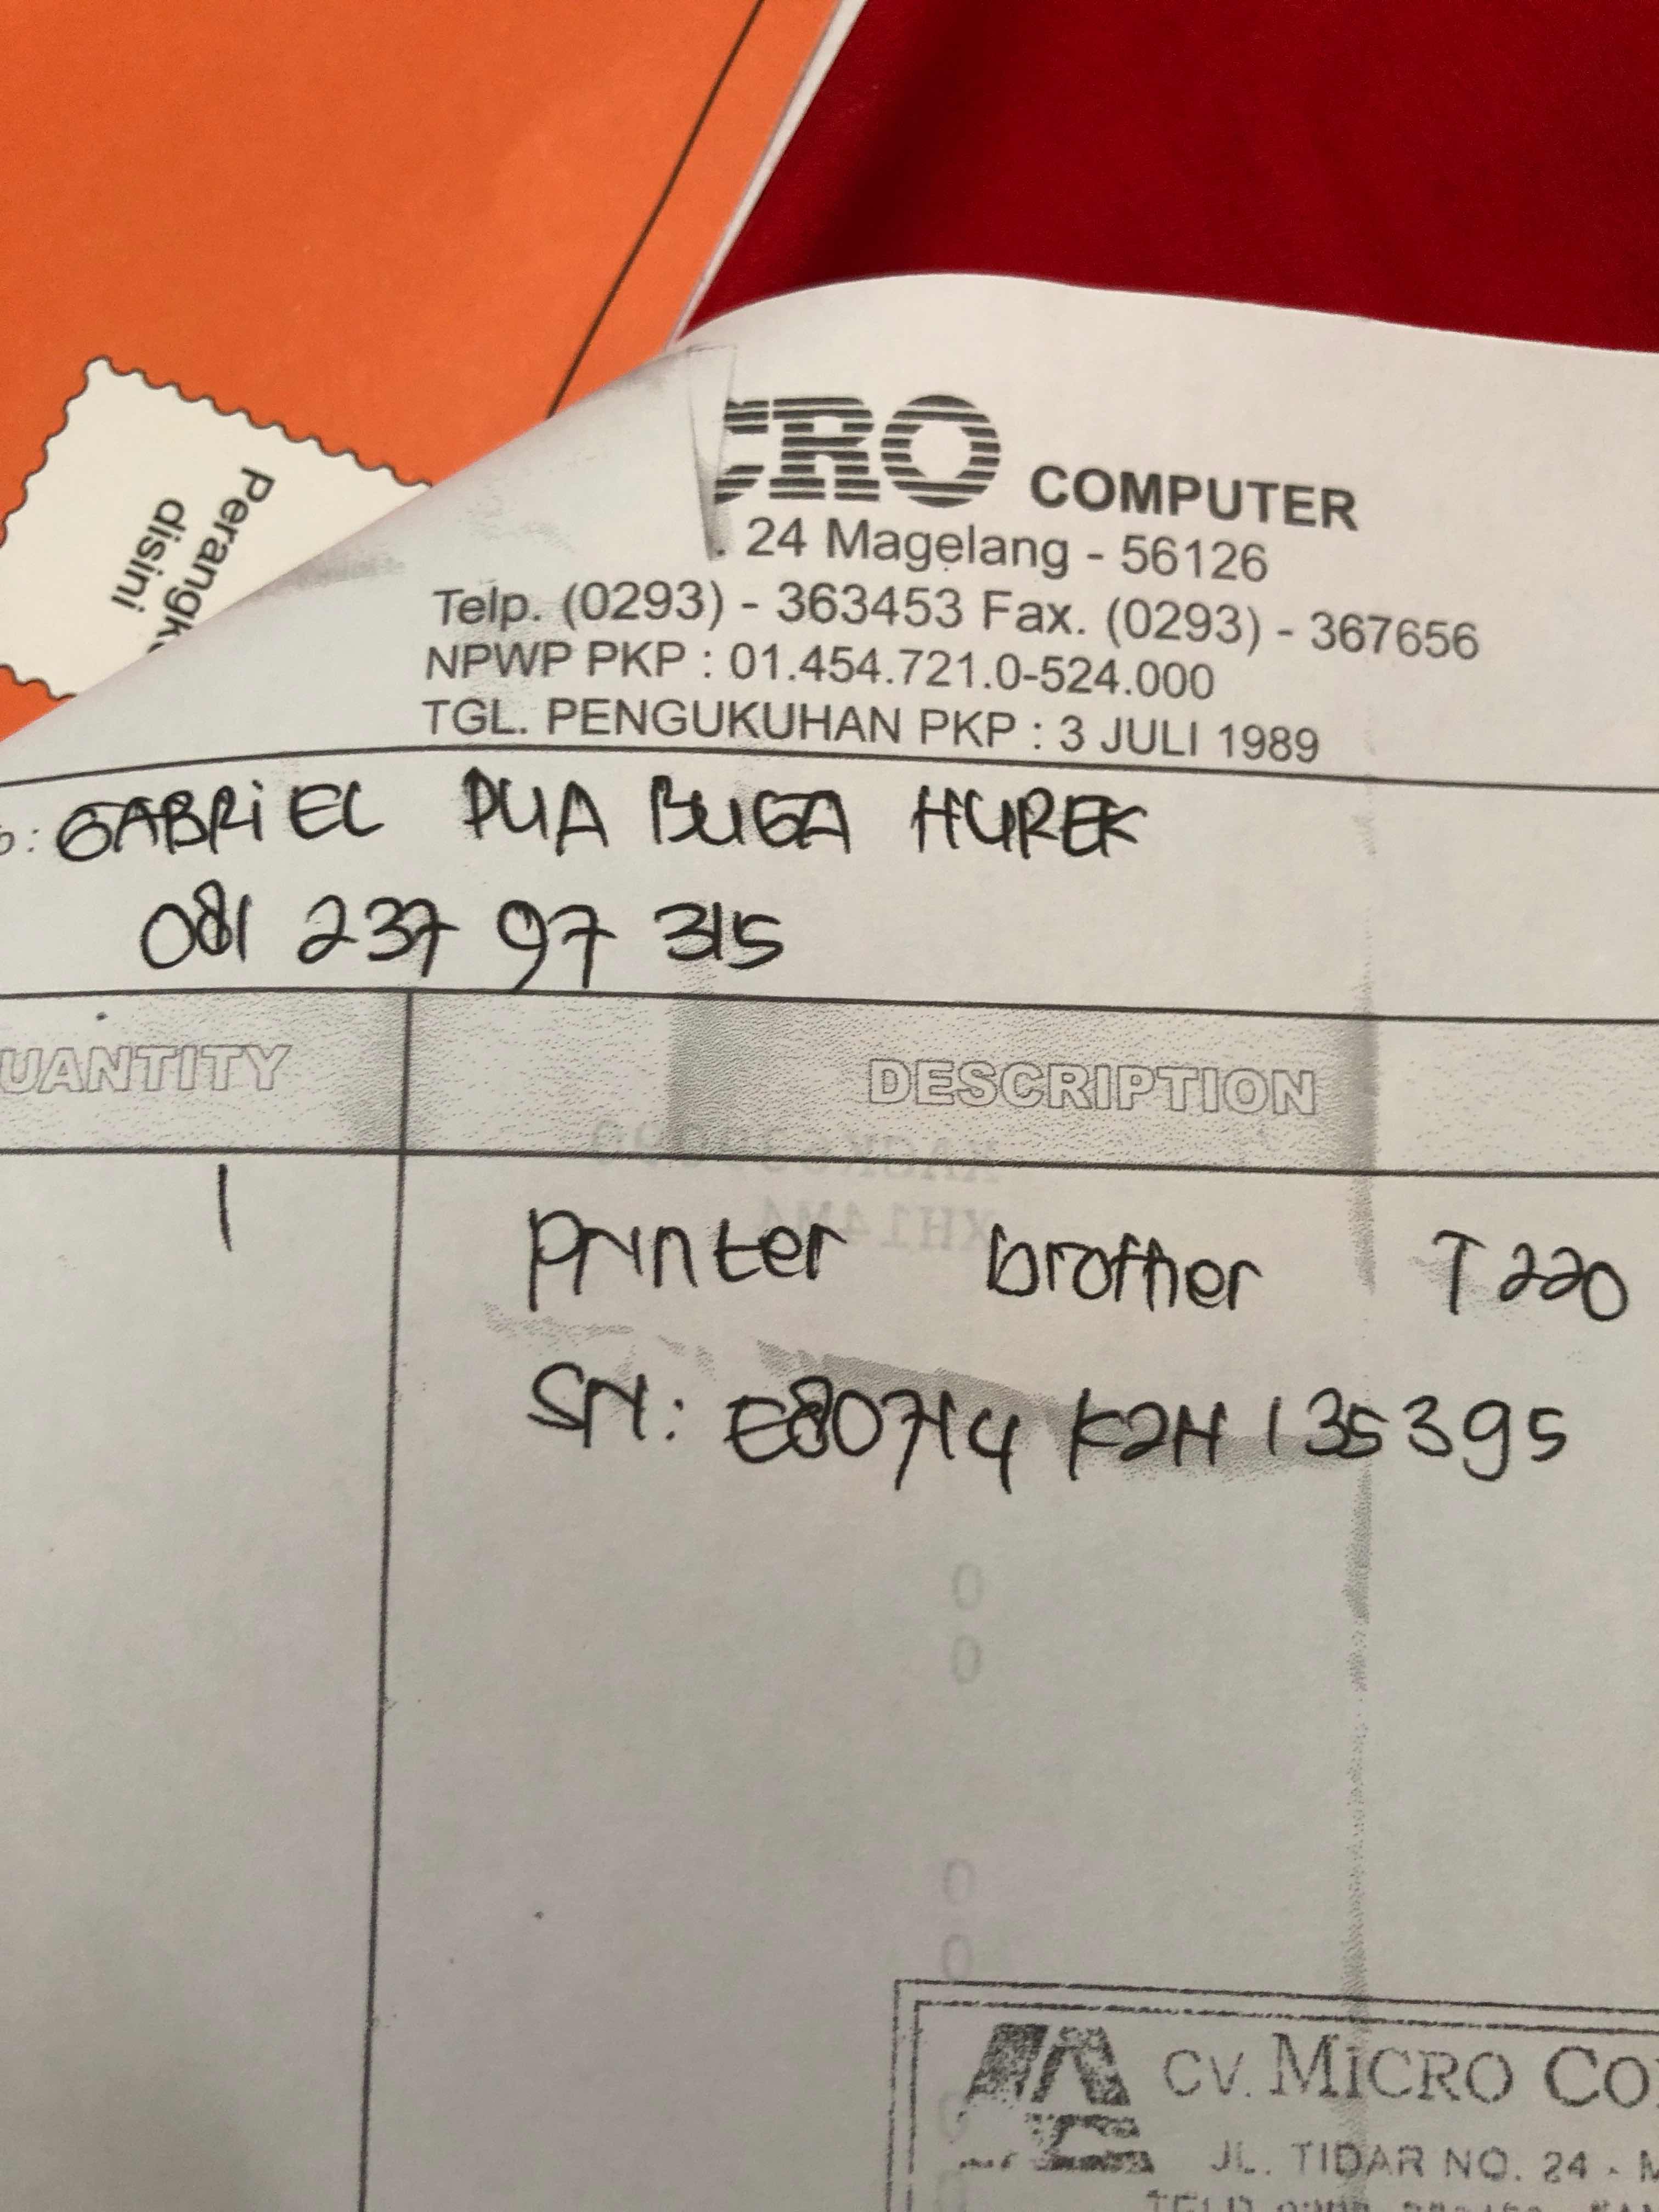 Perangk
disini
CRO COMPUTER
. 24 Magelang - 56126
Telp. (0293) - 363453 Fax. (0293) - 367656
NPWP PKP : 01.454.721.0-524.000
TGL. PENGUKUHAN PKP : 3 JULI 1989
: GABRIEL PUA BUGA HUREK
081 237 97 315
UANTITY DESCRIPTION
1 Printer brother T220
SN: E80714K2H135395
CV. MICRO CO
JL. TIDAR NO. 24 - M